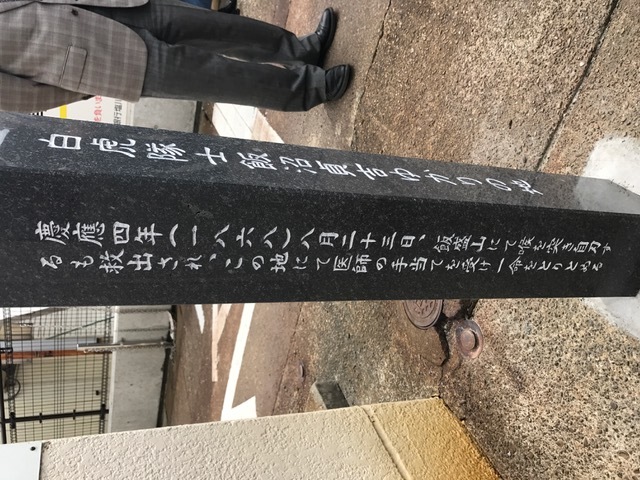 白虎隊士飯沼貞吉ゆかりの地
慶應四年(一八六八)八月二十三日、飯盛山にて喉を突き自刃す
るも救出され、この地にて医師の手当てを受け一命をとりとめる